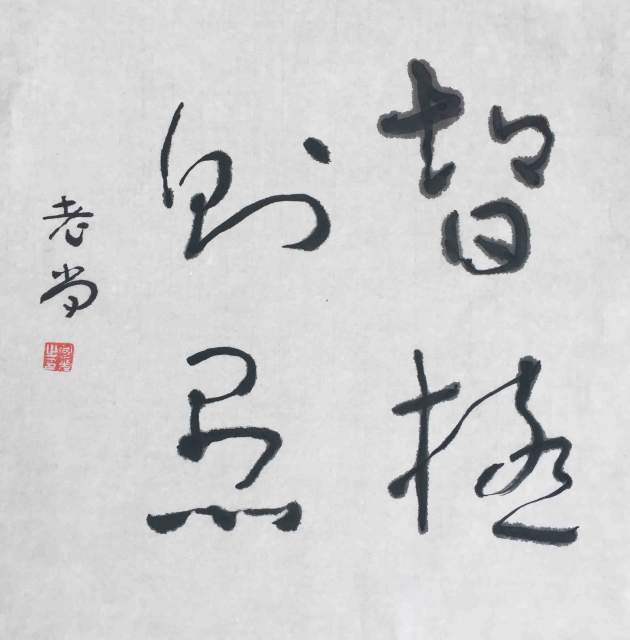 智極
則愚
老尚